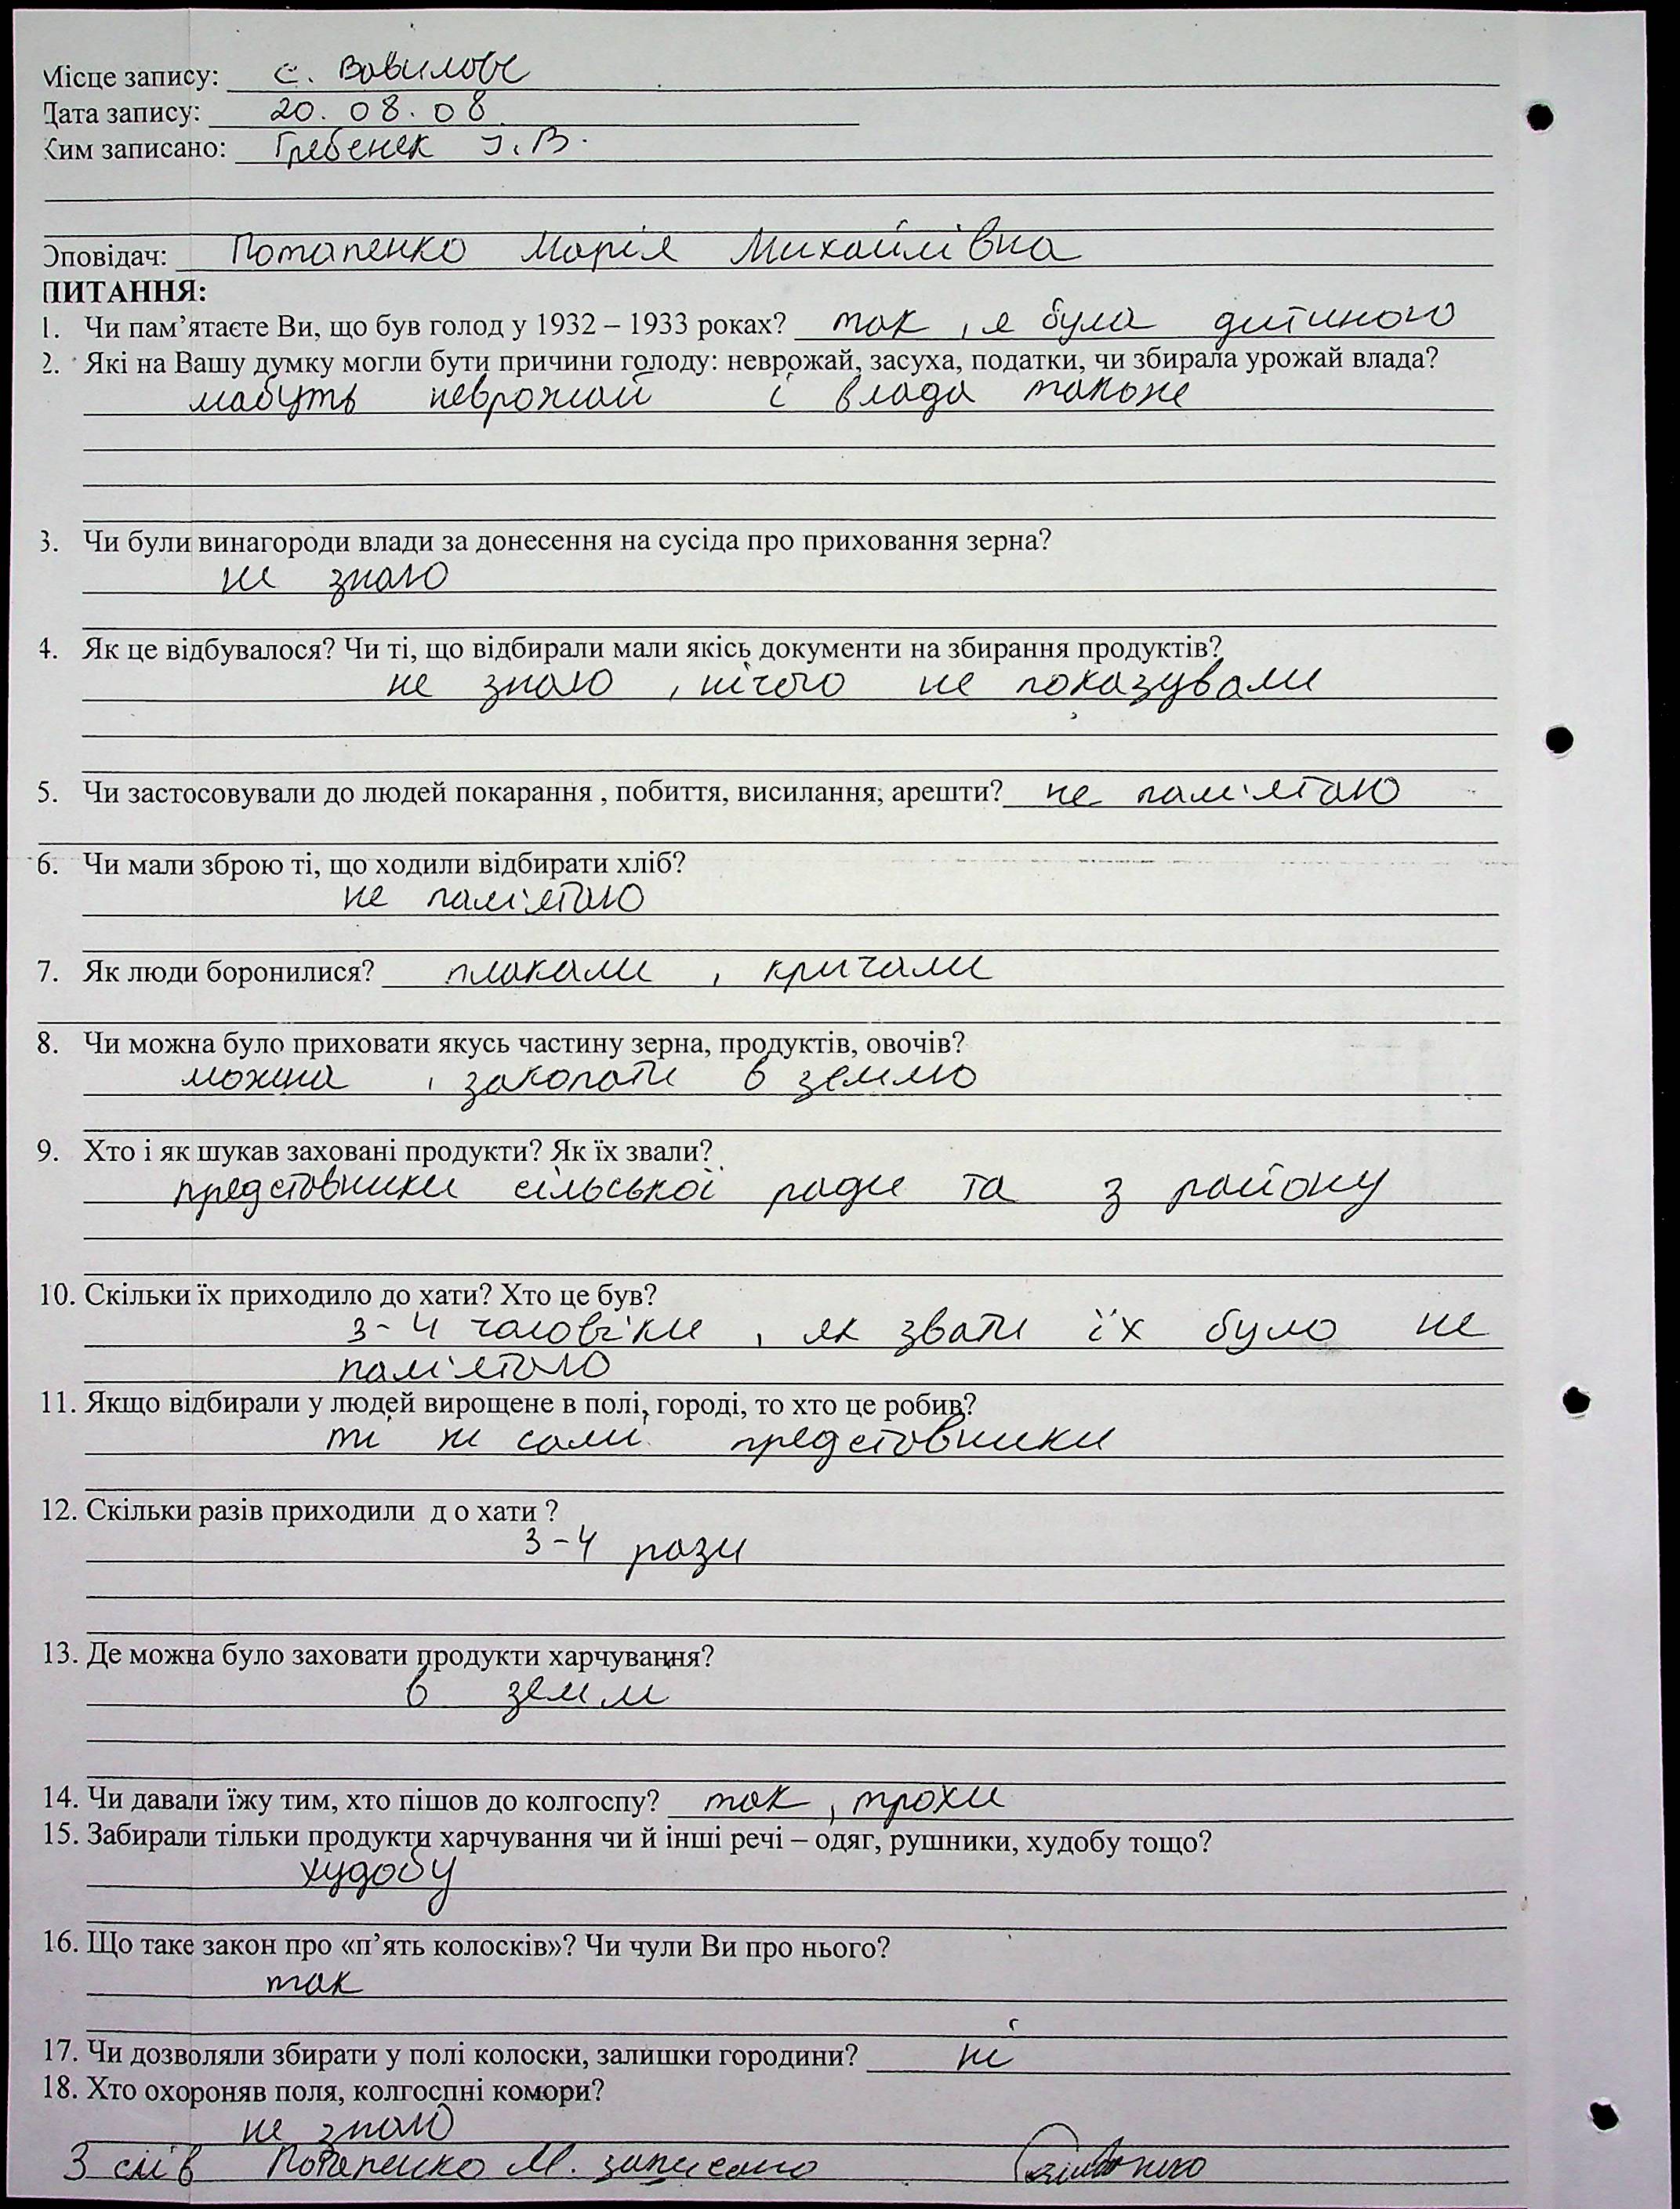 Місце запису: с. Вавилове
Дата запису: 20.08.08
Ким записано: Гребенек І.В.
Оповідач: Потапенко Марія Михайлівна
ПИТАННЯ:
1. Чи пам’ятаєте Ви, що був голод у 1932 – 1933 роках? так, я була дитиною
2. Які на Вашу думку могли бути причини голоду: неврожай, засуха, податки, чи збирала урожай влада?
мабуть неврожай і влада також
3. Чи були винагороди влади за донесення на сусіда про приховання зерна?
не знаю
4. Як це відбувалося? Чи ті, що відбирали мали якісь документи на збирання продуктів?
не знаю, нічого не показували
5. Чи застосовували до людей покарання , побиття, висилання, арешти? не пам'ятаю
6. Чи мали зброю ті, що ходили відбирати хліб?
не пам'ятаю
7. Як люди боронилися? плакали, кричали
8. Чи можна було приховати якусь частину зерна, продуктів, овочів?
можна, закопати в землю
9. Хто і як шукав заховані продукти? Як їх звали?
представники сільської ради та з району
10. Скільки їх приходило до хати? Хто це був?
3-4 чоловіки, як звати їх було не
пам'ятаю
11. Якщо відбирали у людей вирощене в полі, городі, то хто це робив?
ті ж самі представники
12. Скільки разів приходили д о хати ?
3-4 рази
13. Де можна було заховати продукти харчування?
в землі
14. Чи давали їжу тим, хто пішов до колгоспу? так, трохи
15. Забирали тільки продукти харчування чи й інші речі – одяг, рушники, худобу тощо?
худобу
16. Що таке закон про «п’ять колосків»? Чи чули Ви про нього?
так
17. Чи дозволяли збирати у полі колоски, залишки городини? ні
18. Хто охороняв поля, колгоспні комори?
не знаю
З слів Потапенко М. записано